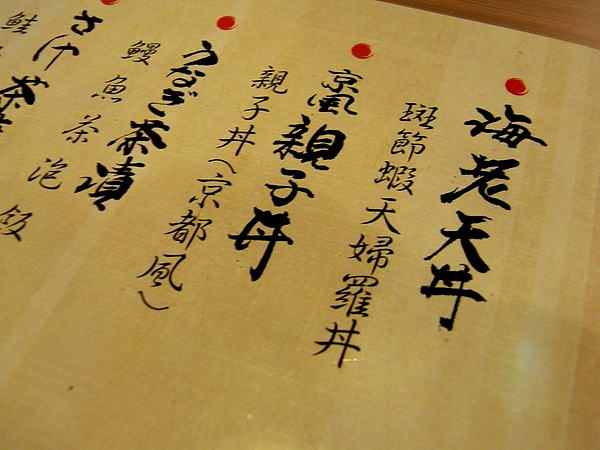 海老天丼
斑節蝦天婦羅丼
京風親子丼
親子丼(京都風)
うなぎ茶漬
鰻魚茶泡飯
さけ茶
鮭